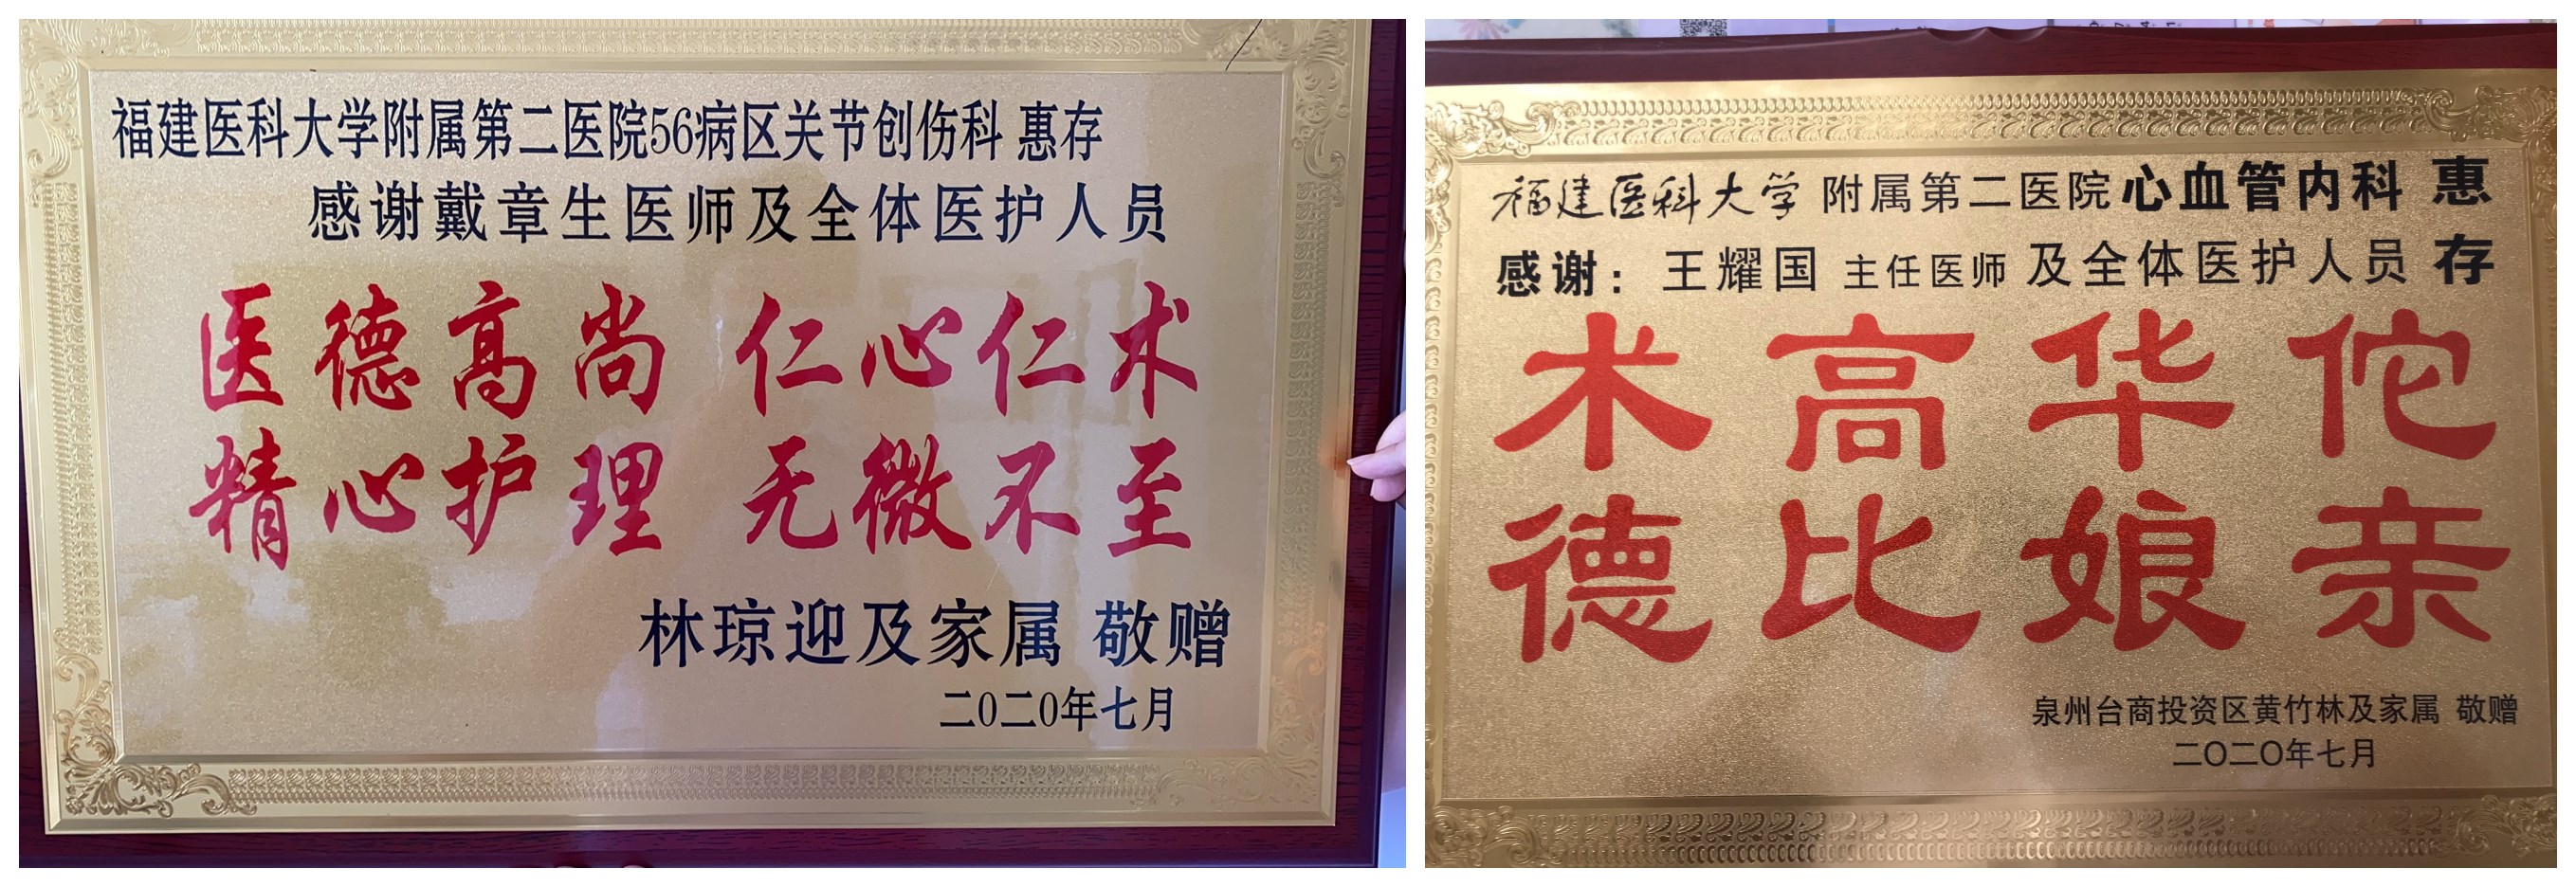 福建医科大学附属第二医院56病区关节创伤科 惠存
感谢戴章生医师及全体医护人员
医德高尚 仁心仁术
精心护理 无微不至
林琼迎及家属 敬赠
二〇二〇年七月
福建医科大学 附属第二医院 心血管内科 惠
感谢： 王耀国 主任医师 及全体医护人员 存
术高华佗
德比娘亲
泉州台商投资区黄竹林及家属 敬赠
二〇二〇年七月